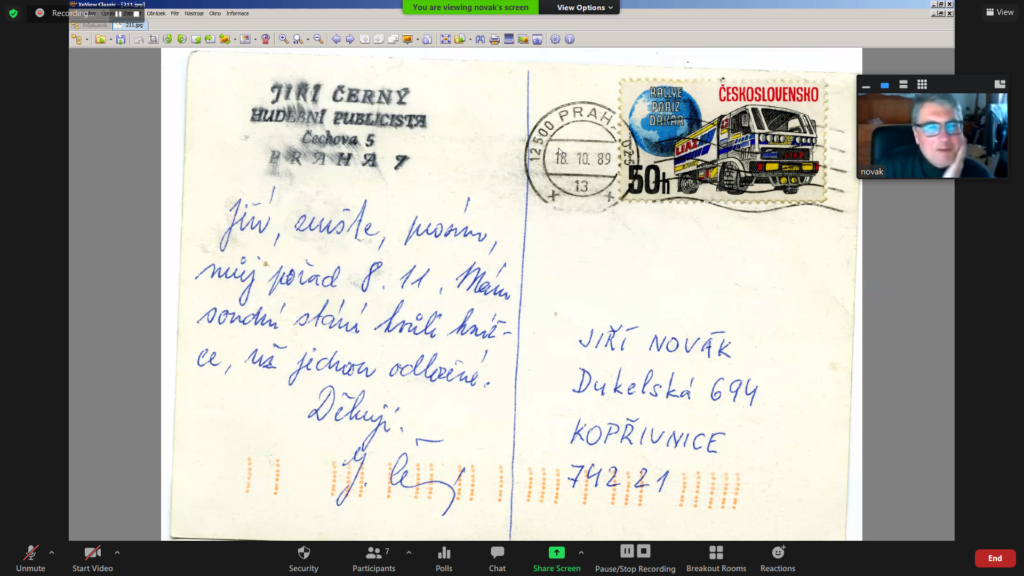 XnView Classic - [211.jpg]
Recording
Obrázek Filtr Nástroje Okno Informace
211.jpg
You are viewing novak's screen
View Options
View
JIŘÍ ČERNÝ
HUDEBNÍ PUBLICISTA
Čechova 5
PRAHA 7
12500 PRAHA
18.10.89
13
RALLYE
PAŘÍŽ
DAKAR
ČESKOSLOVENSKO
LIAZ
50h
novak
Jiří, zrušte, prosím,
můj pořad 8. 11. Mám
soudní stání kvůli kníž-
ce, už jednou odložené.
Děkuji.
J. Če
JIŘÍ NOVÁK
Dukelská 694
KOPŘIVNICE
742 21
Unmute
Start Video
Security
Participants
7
Polls
Chat
Share Screen
Pause/Stop Recording
Breakout Rooms
Reactions
End